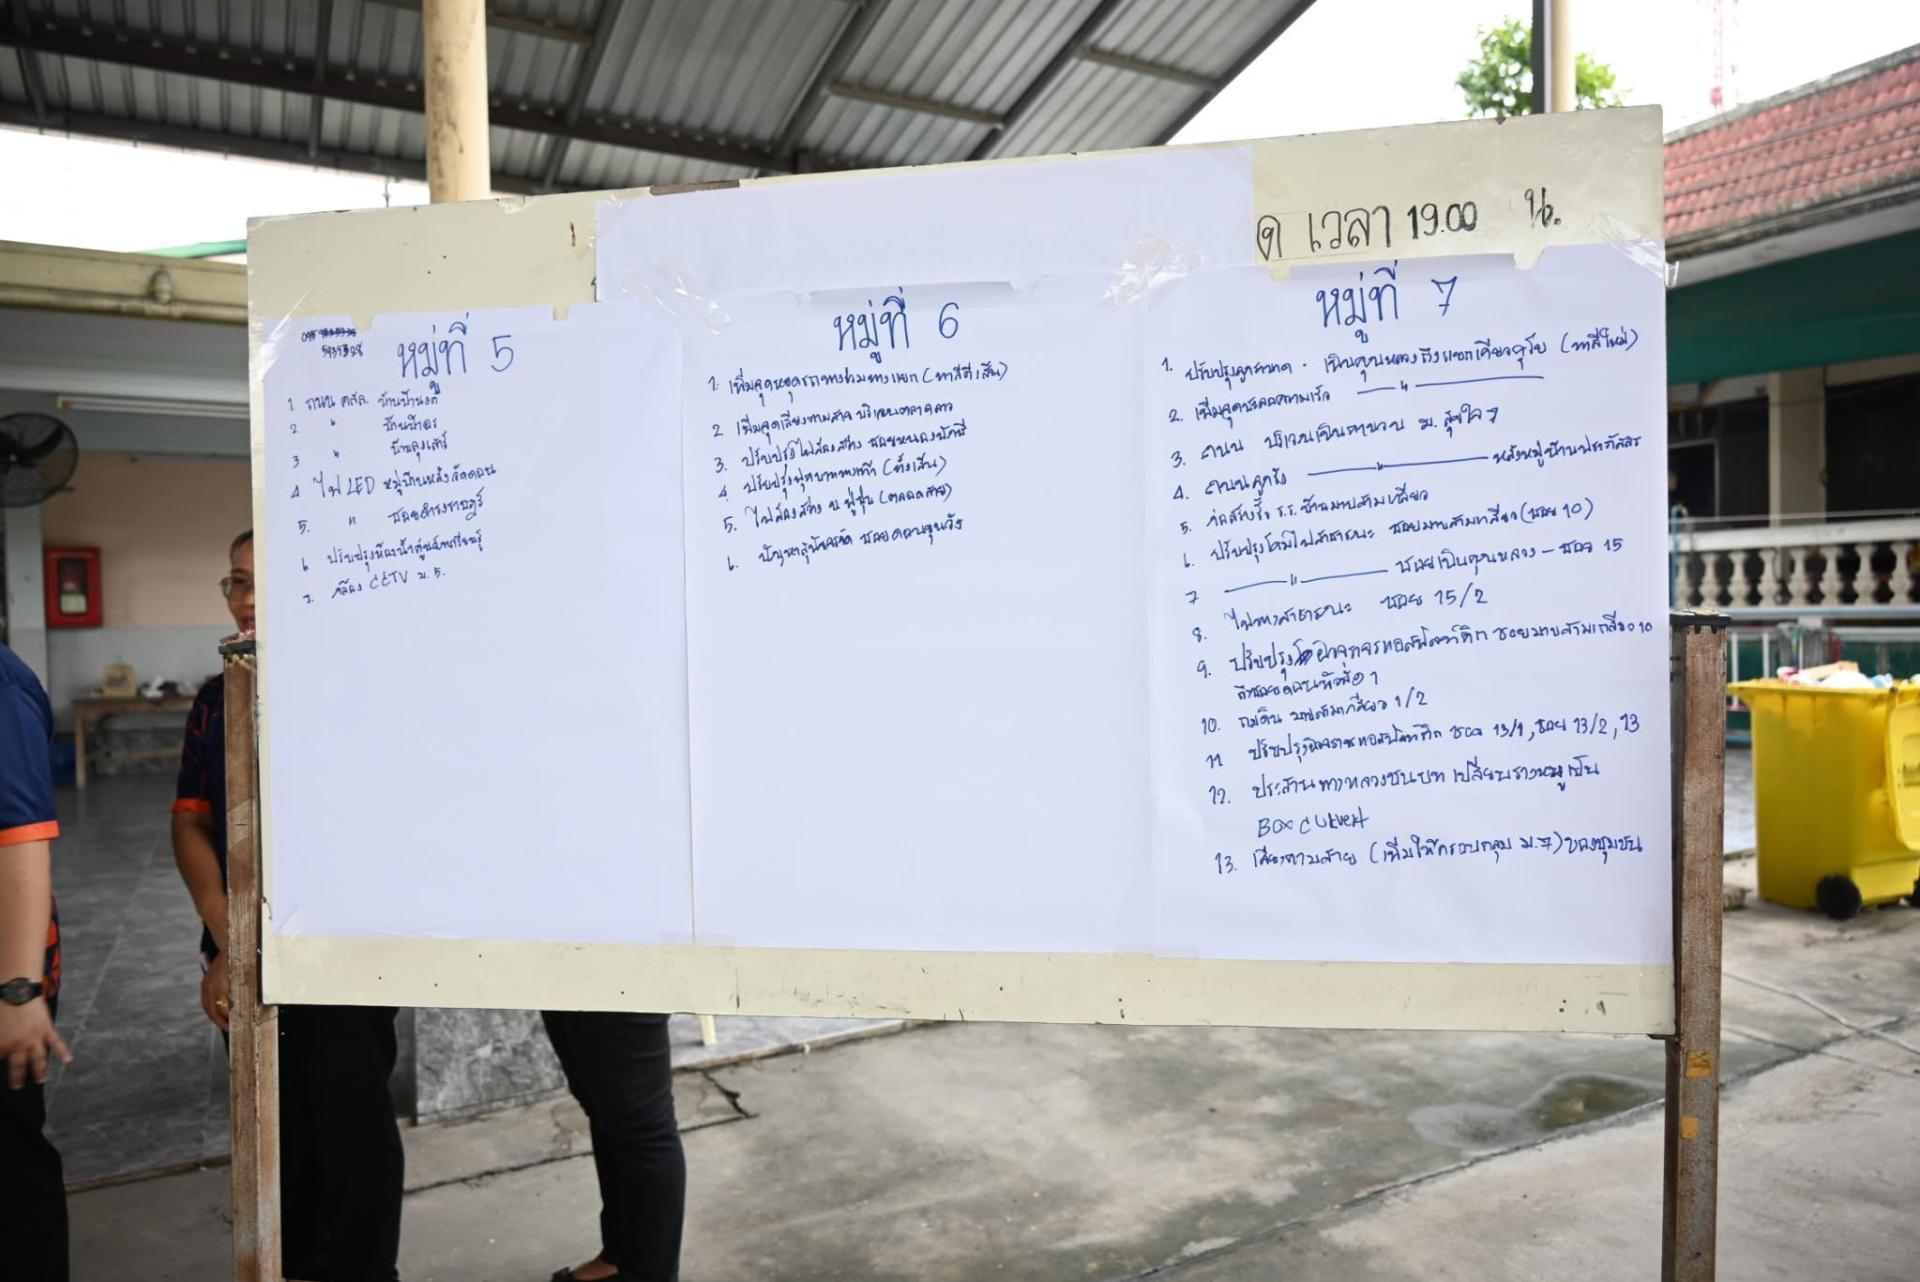 ด เวลา 19.00 น.
หมู่ที่ 5
1 ถนน คสล. บ้าน
2 " บ้าน
3 "
4 ไฟ LED หมู่บ้านหลังวัดดอน
5. " ซอยดำรงราษฎร์
6 ปรับปรุงห้องน้ำศูนย์การเรียนรู้
7. กล้อง CCTV ม.5.
หมู่ที่ 6
1. เพิ่มจุดหยุดรถทางร่วมทางแยก (ทาสีตีเส้น)
2 เพิ่มจุดเสียงตามสาย บริเวณตลาด
3. ปรับปรุงไฟส่องสว่าง ซอยหนอง
4 ปรับปรุงฟุตบาททางเท้า (ทั้งเส้น)
5. ไฟส่องสว่าง (ตลอดสาย)
6. ปัญหาสุนัขจรจัด ซอยดอนขุนวัง
หมู่ที่ 7
1. ปรับปรุงลูกระนาด เนินคุณหลวงถึงแยก (ทาสีใหม่)
2. เพิ่มจุดชะลอความเร็ว "
3. ถนน บริเวณ ม. สุขใจ 7
4. ถนนลูกรัง " หลังหมู่บ้านประภัสสร
5. ก่อสร้างรั้ว ร.ร. บ้านมาบสามเกลียว
6. ปรับปรุงโคมไฟสาธารณะ ซอยมาบสามเกลียว (ซอย 10)
7 " ซอยเนินคุณหลวง - ซอย 15
8. ไฟทางสาธารณะ ซอย 15/2
9. ปรับปรุงผิวจราจรแอสฟัลท์ติก ซอยมาบสามเกลียว 10
ถึงซอยดอนหัวฬ่อ 1
10. ถมดิน มาบสามเกลียว 1/2
11 ปรับปรุงผิวจราจรแอสฟัลท์ติก ซอย 13/1, ซอย 13/2, 13
12. ประสานทางหลวงชนบท เปลี่ยนรางหมูเป็น
Box Culvert
13. เสียงตามสาย (เพิ่มให้ครอบคลุม ม.7) ของชุมชน